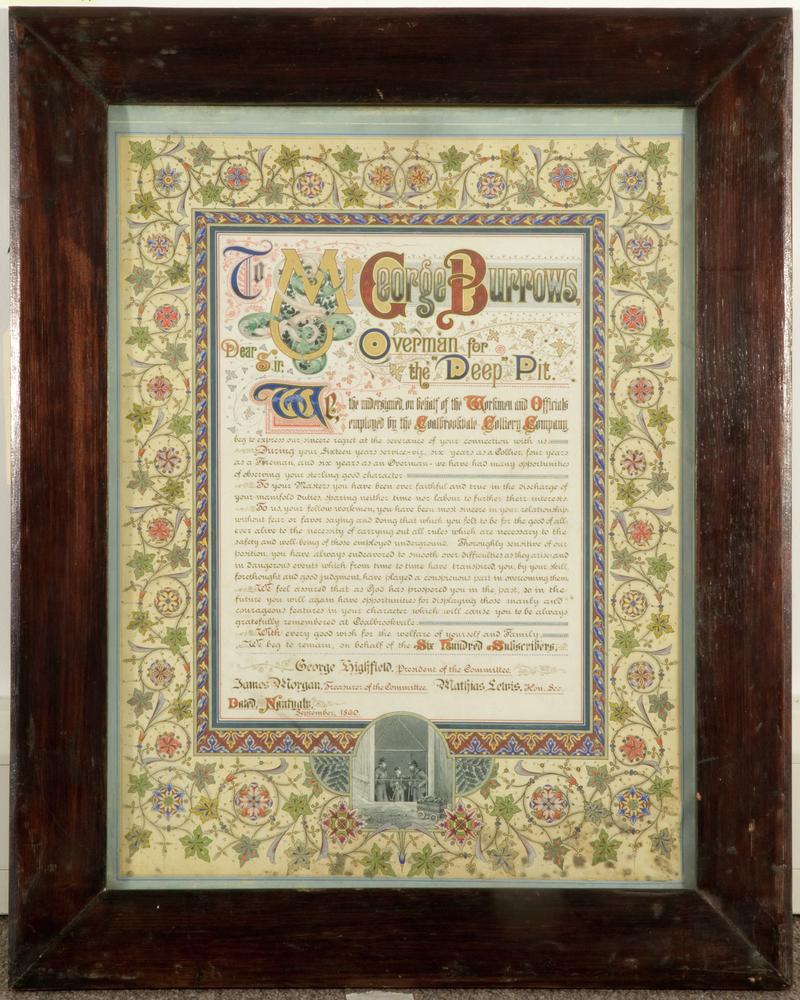 To Mr George Burrows,
Overman for
Dear Sir.
the "Deep" Pit.
We, the undersigned, on behalf of the Workmen and Officials
employed by the Coalbrookvale Colliery Company,
beg to express our sincere regret at the severance of your connection with us
During your Sixteen years service-viz, six years as a Collier, four years
as a Fireman, and six years as an Overman - we have had many opportunities
of observing your sterling good character
To your Masters you have been ever faithful and true in the discharge of
your manifold duties, sparing neither time nor labour to further their interests.
To us, your fellow workmen, you have been most sincere in your relationship
without fear or favor saying and doing that which you felt to be for the good of all
ever alive to the necessity of carrying out all rules which are necessary to the
safety and well-being of those employed underground. Thoroughly sensitive of our
position you have always endeavored to smooth over difficulties as they arise and
in dangerous events which from time to time have transpired, you, by your skill,
forethought and good judgment, have played a conspicuous part in overcoming them
We feel assured that as God has prospered you in the past, so in the
future you will again have opportunities for displaying those manly and
courageous features in your character which will cause you to be always
gratefully remembered at Coalbrookvale.
With every good wish for the welfare of yourself and Family,
We beg to remain, on behalf of the Six Hundred Subscribers,
George Highfield, President of the Committee.
James Morgan, Treasurer of the Committee. Mathias Lewis, Hon. Sec.
Dated, Nantyglo,
September, 1890.